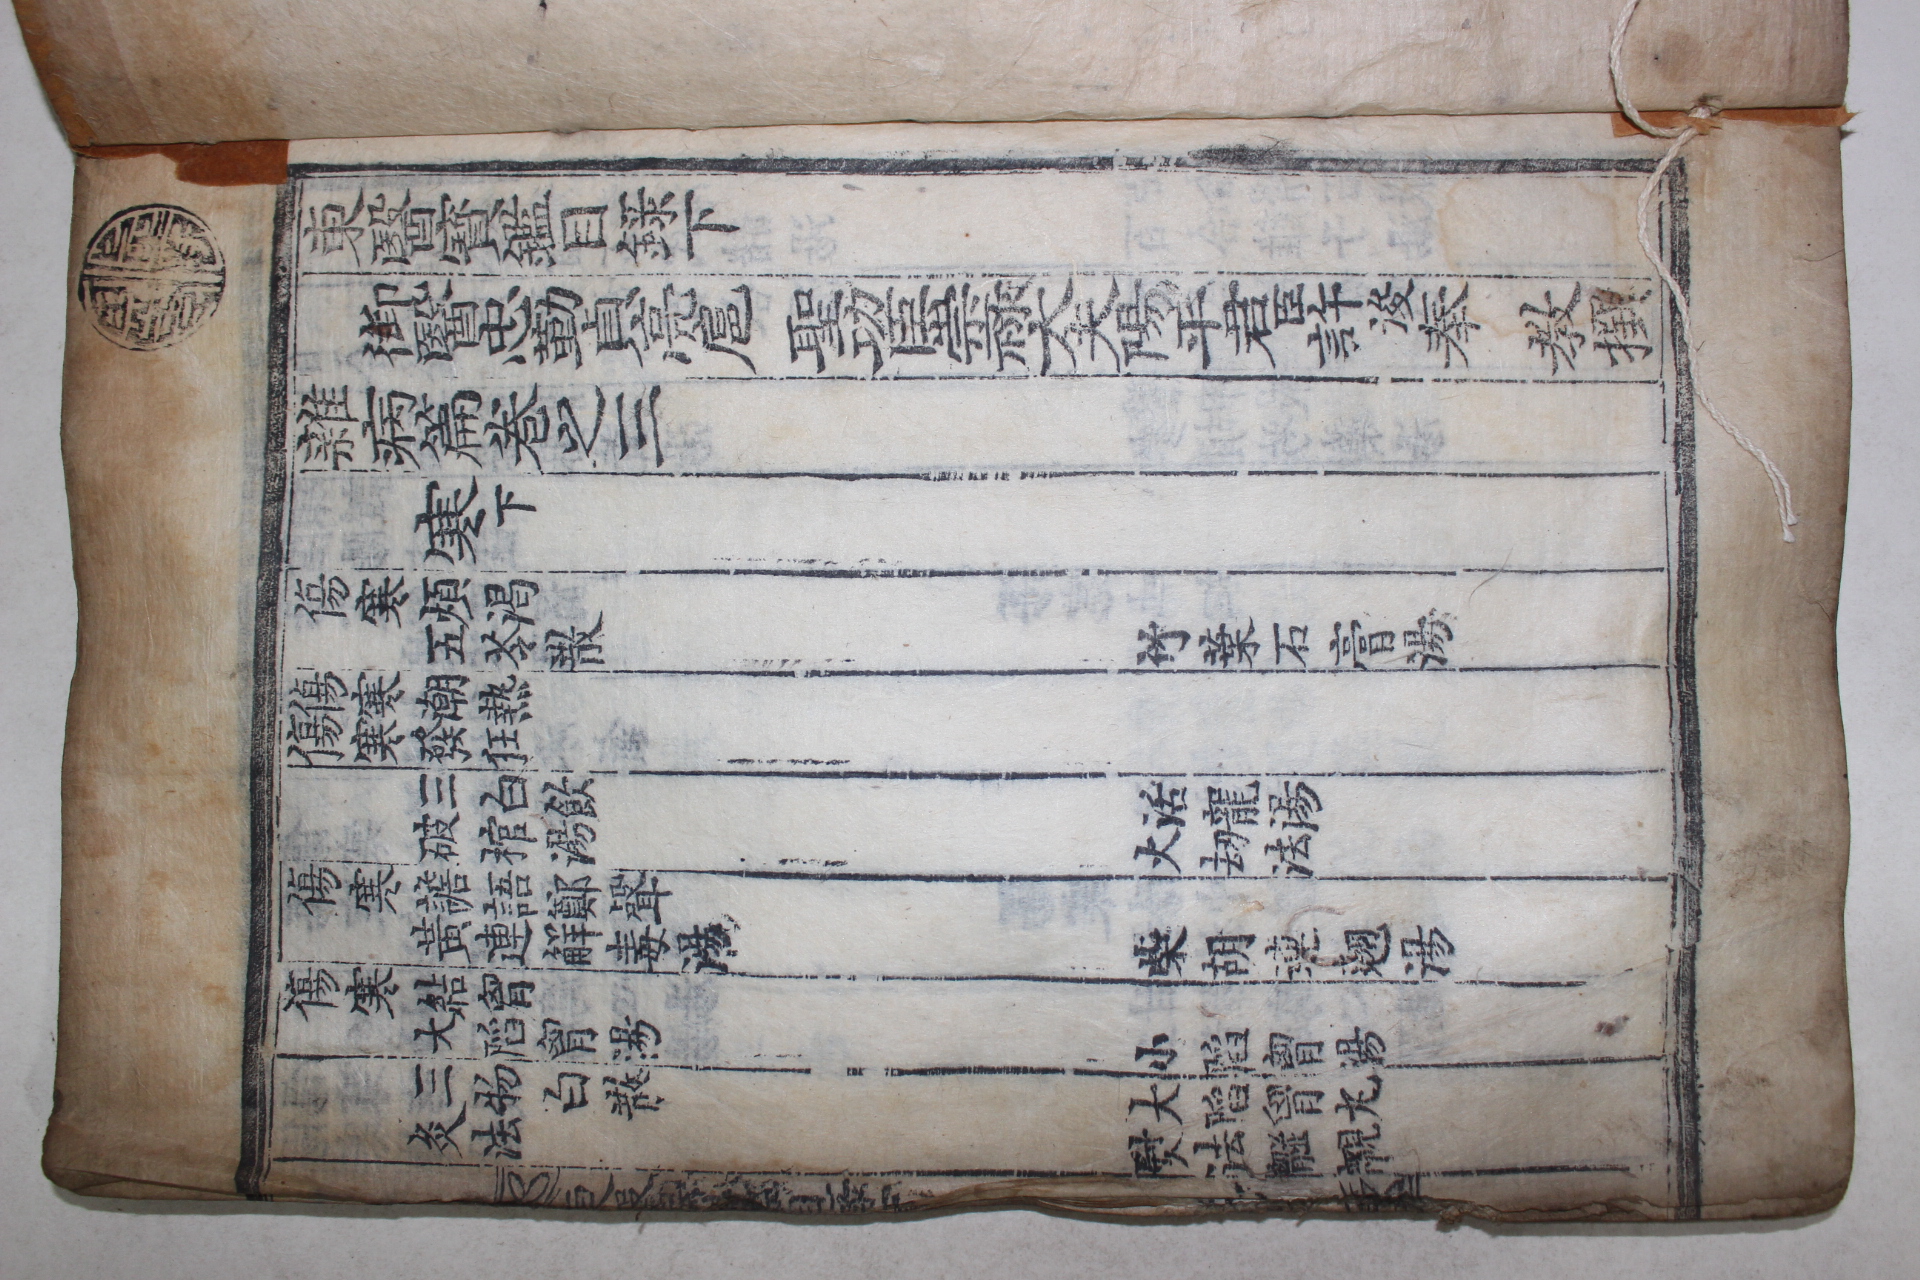 東醫寶鑑目錄下
御醫忠勤貞亮扈 聖功臣崇祿大夫陽平君臣許浚奉 教撰
雜病篇卷之三
寒下
傷寒煩渴
五苓散 竹葉石膏湯
傷寒潮熱
傷寒發狂
三白飮 活龍湯
破棺湯 火劫法
傷寒譫語鄭聲
黃連解毒湯 柴胡連翹湯
傷寒結胷
大陷胷湯 小陷胷湯
三物白散 大陷胷丸
灸法 熨法